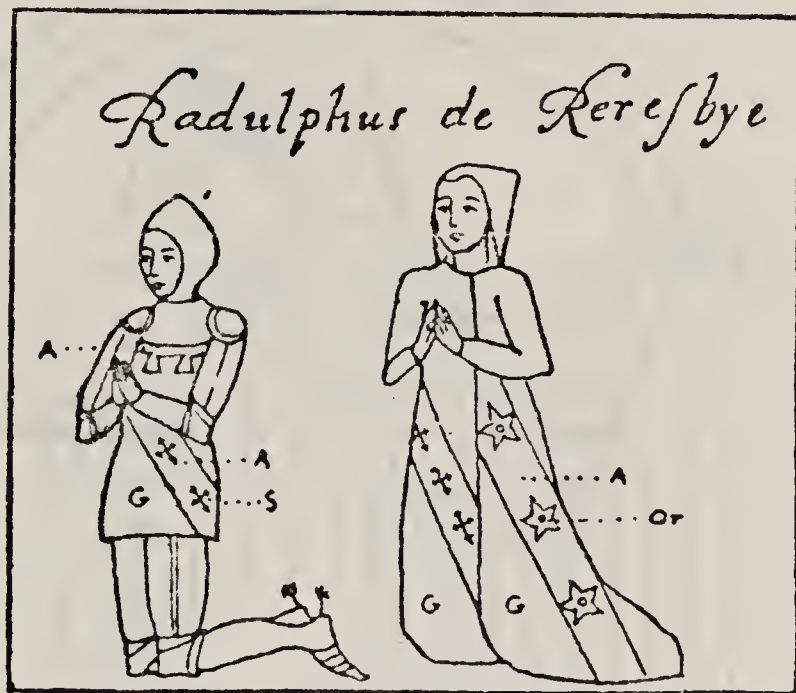 Radulphus de Reresbye
A
A
G
S
A
Or
G
G